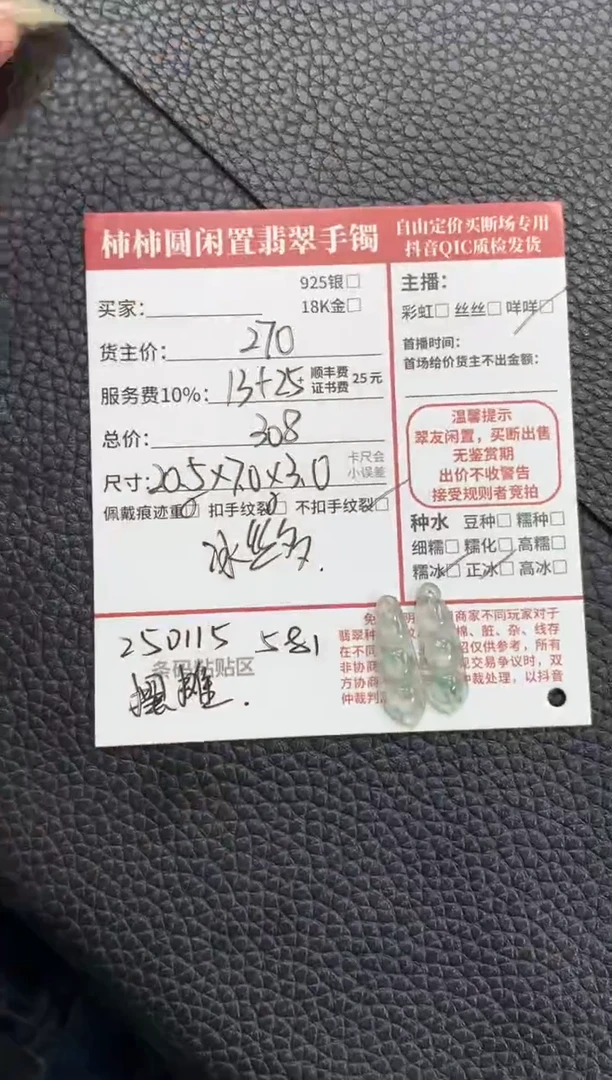 柿柿圆闲置翡翠手镯
自由定价买断场专用
抖音QIC质检发货
925银□
买家: 18K金□
货主价: 270
服务费10%: 13+25+ 顺丰费 证书费 25元
总价: 308
尺寸: 20.5×7.0×3.0 卡尺会 小误差
佩戴痕迹重□ 扣手纹裂□ 不扣手纹裂□
冰
主播:
彩虹□ 丝丝□ 咩咩□
首播时间:
首场给价货主不出金额:
温馨提示
翠友闲置，买断出售
无鉴赏期
出价不收警告
接受规则者竞拍
种水 豆种□ 糯种□
细糯□ 糯化□ 高糯□
糯冰□ 正冰□ 高冰□
250115 581
条码粘贴区
摆摊.
免 明 商家不同玩家对于
翡翠种 棉、脏、杂、线存
在不同 绍仅供参考，所有
非协商 现交易争议时，双
方协商 仲裁处理，以抖音
仲裁判